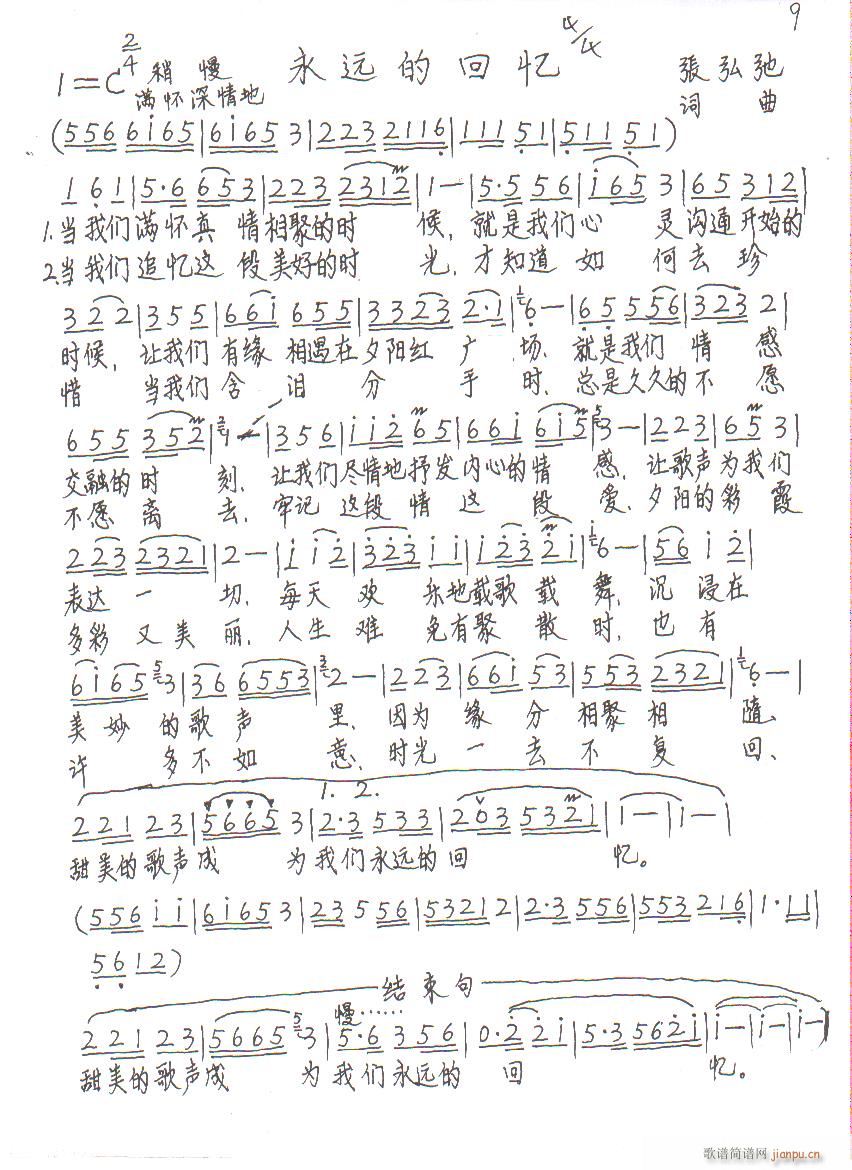 9
1=C 2/4 稍慢 永远的回忆 4/4 張弘弛
满怀深情地 词 曲
(556 6i65|6i65 3|223 2116|111 51|511 51)
1 61|5·6 653|223 2312|1—|5·5 56|i65 3|65 312|
1.当我们满怀真 情相聚的时 候,就是我们心 灵沟通开始的
2.当我们追忆这 段美好的时 光.才知道如 何去珍
322|355|66i 655|3323 2·1|6—|65 556|323 2|
时候,让我们有缘相遇在夕阳红 广 场.就是我们 情 感
惜 当我们含 泪 分 手 时,总是久久的不 愿
655 352|1—|356|ii2 65|66i 6i5|3—|223|65 3|
交融的时 刻.让我们尽情地抒发内心的情 感,让歌声为我们
不愿 离 去,牢记 这段 情 这 段 爱.夕阳的彩 霞
223 2321|2—|i i2|323 ii|i23 2i|6—|56 i2|
表达 一 切.每天 欢 乐地载歌 载 舞,沉 浸在
多彩 又 美 丽.人生 难 免有聚 散 时,也 有
6i65 3|36 6553|2—|223|66i 53|553 2321|6—|
美 妙 的歌 声 里,因为 缘 分 相聚 相 随、
许 多不如 意,时光 一 去 不 复 回、
1. 2.
221 23|5665 3|2·3 533|203 5321|1—|1—|
甜美的歌声成 为我们永远的回 忆。
(556 ii|6i65 3|23 5 56|5321 2|2·3 556|553 216|1·11|
56 12)
结束句
慢……
221 23|5665 3|5·6 356|0·2 2i|5·3 562i|i—|i—|i—|
甜美的歌声成 为我们永远的 回 忆。
歌谱简谱网 jianpu.cn